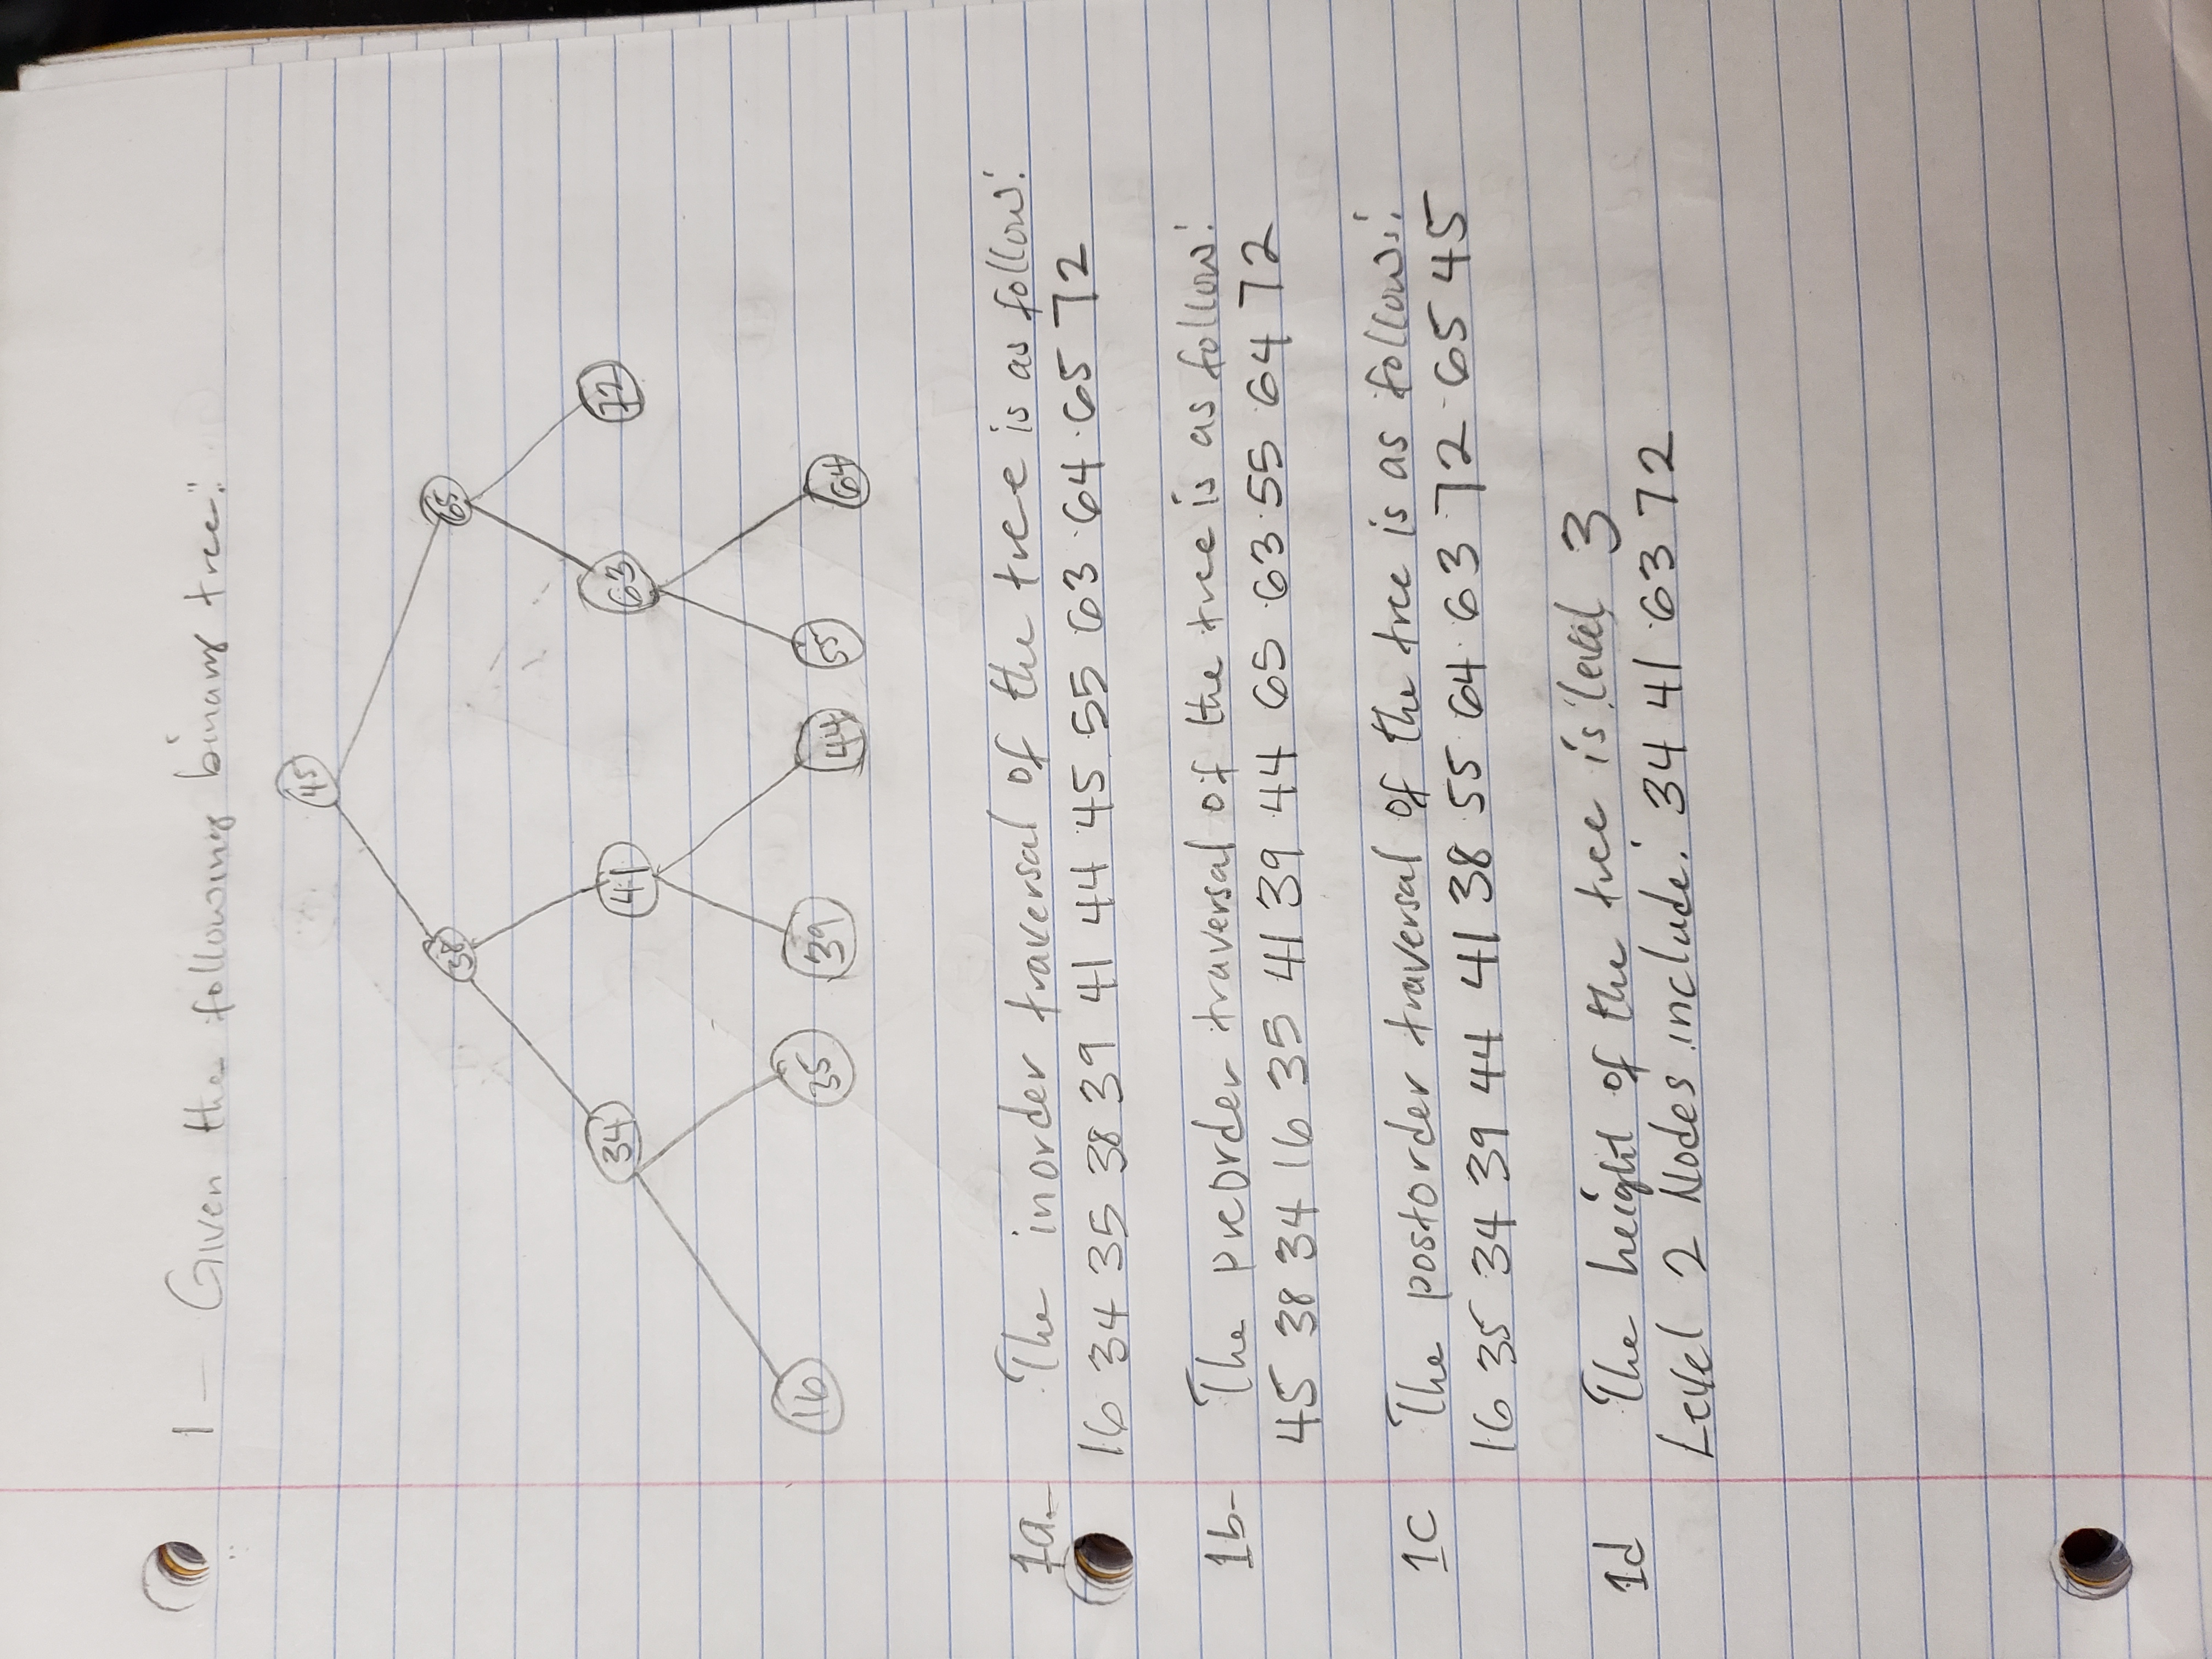 1 - Given the following binary tree:
45
38 65
34 41 63 72
16 35 39 44 55 64
1a- The inorder traversal of the tree is as follow:
16 34 35 38 39 41 44 45 55 63 64 65 72
1b- The preorder traversal of the tree is as follow:
45 38 34 16 35 41 39 44 65 63 55 64 72
1c The postorder traversal of the tree is as follows:
16 35 34 39 44 41 38 55 64 63 72 65 45
1d The height of the tree is level 3
Level 2 Nodes include: 34 41 63 72